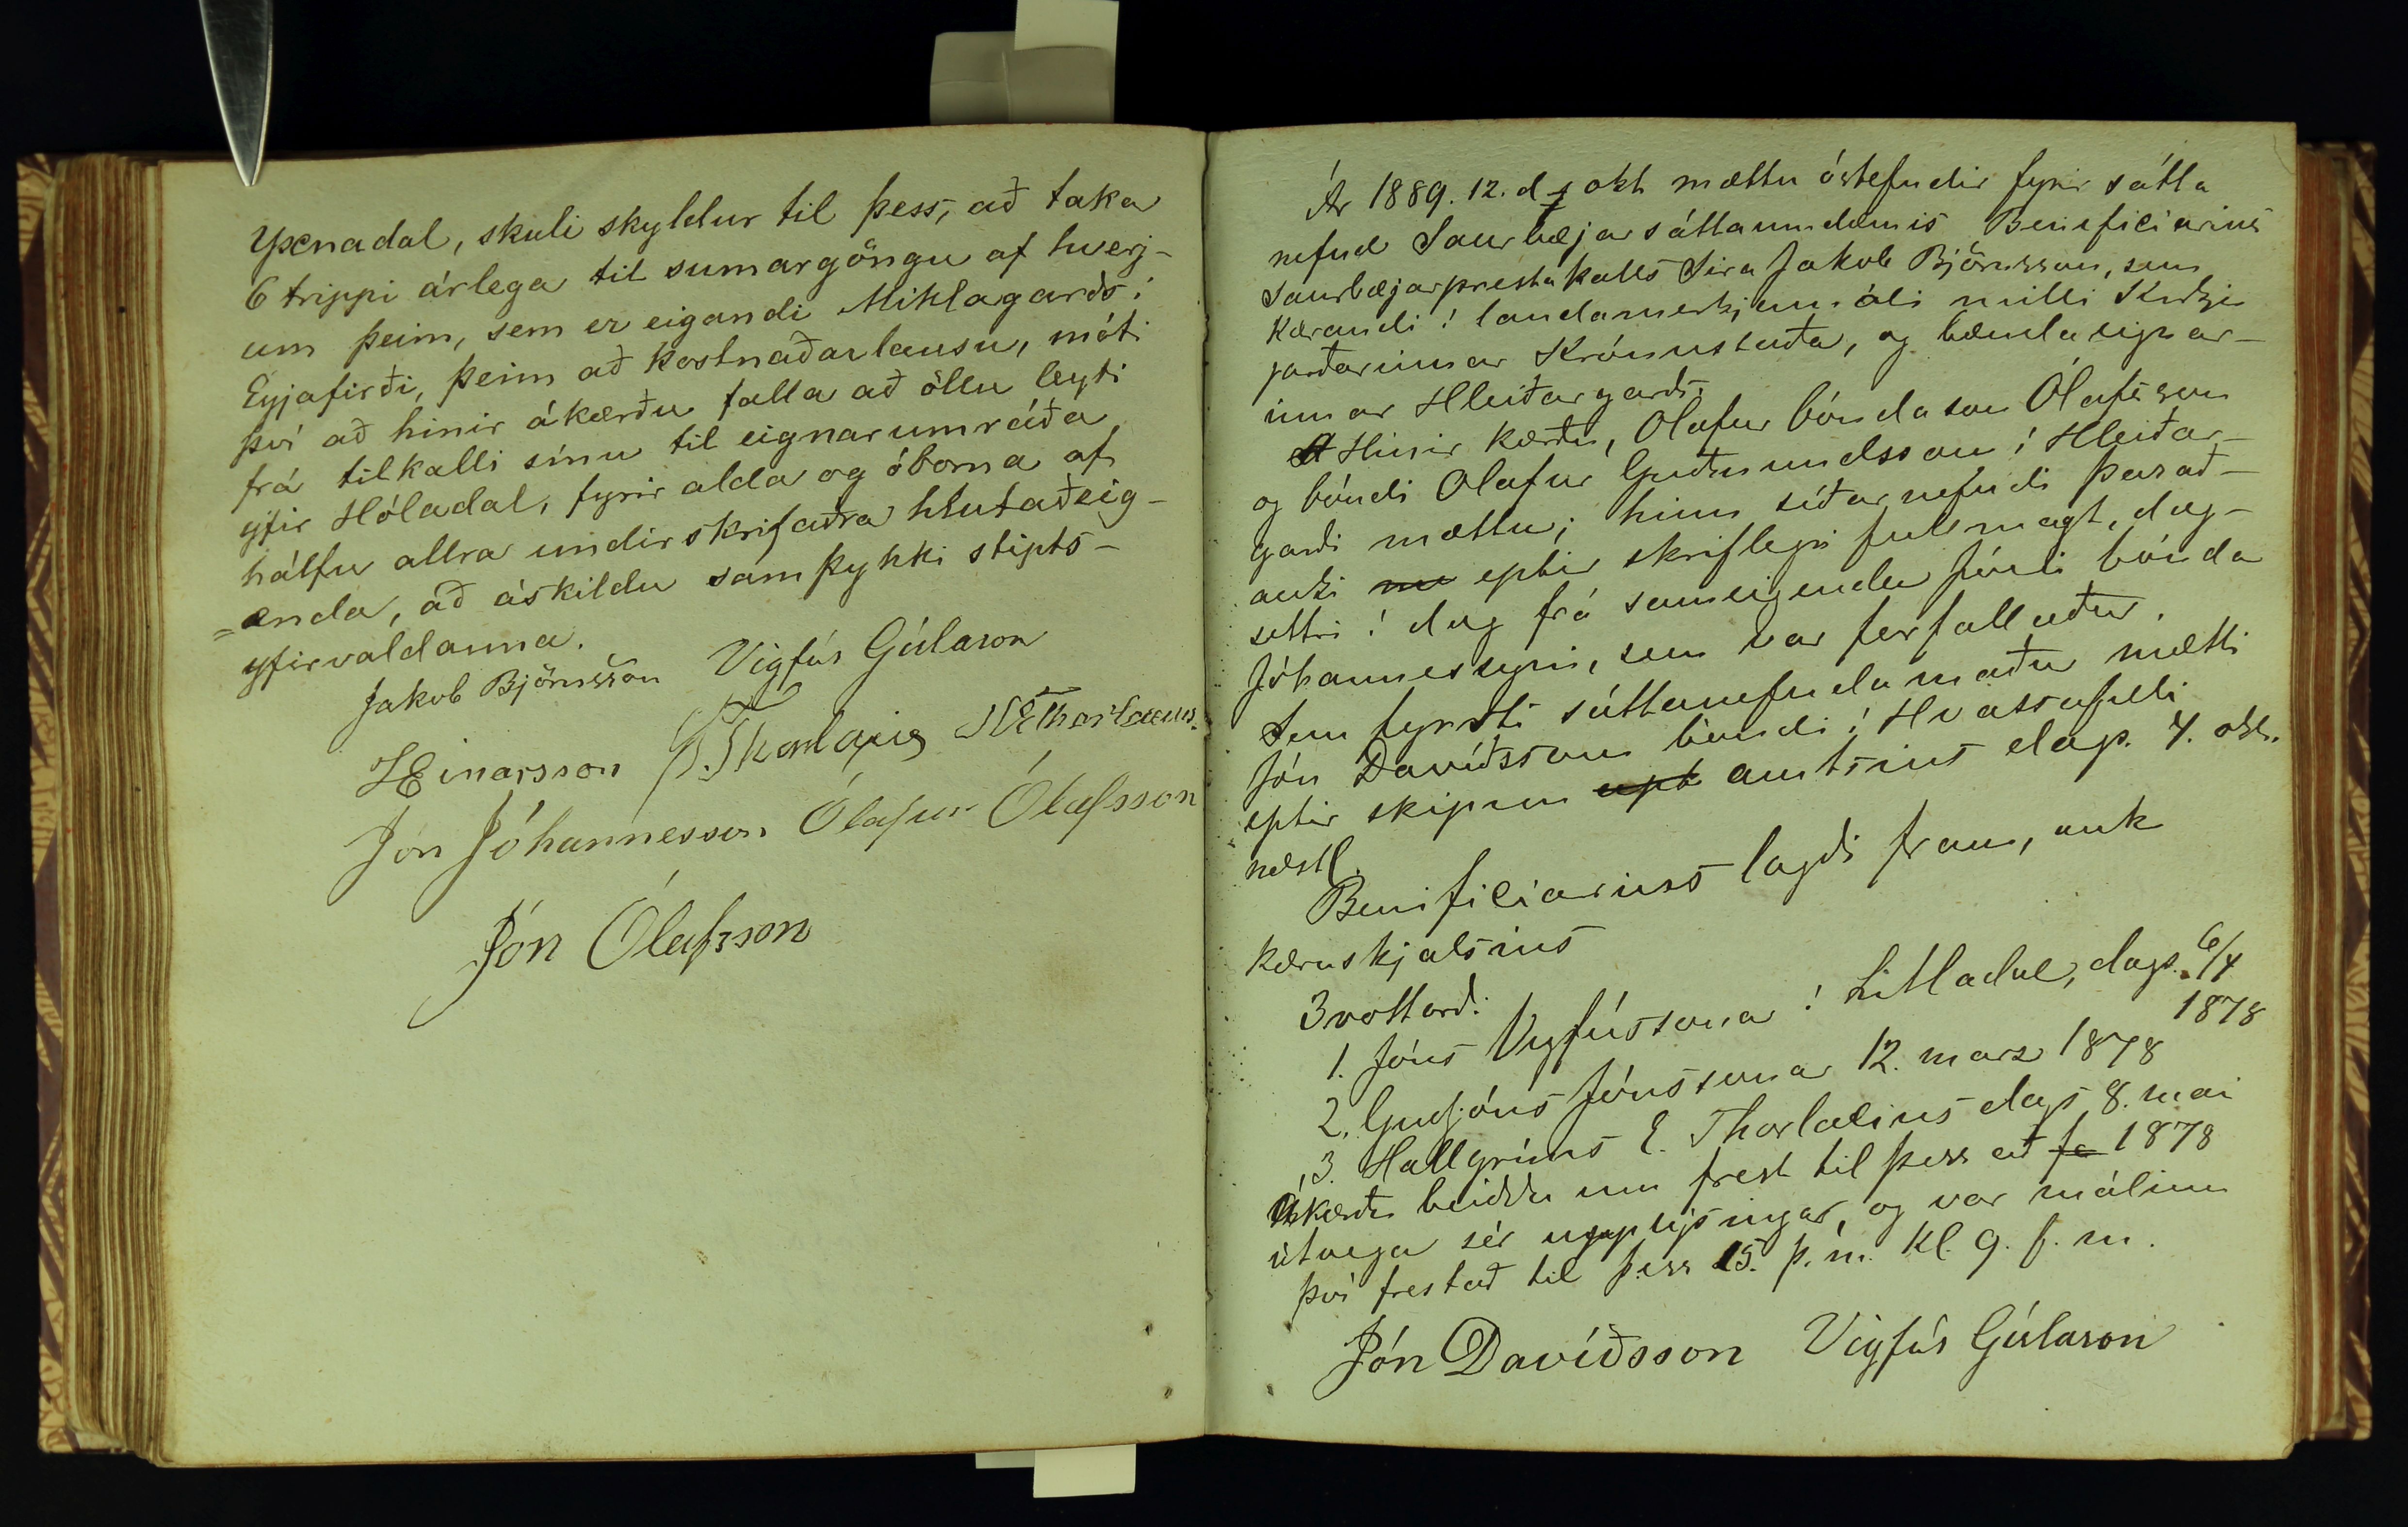 Yxnadal, skuli skyldur til þess, að taka
6 trippi árlega til sumargöngu af hverj-
um þeim, sem er eigandi Miklagarðs í
Eyjafirði, þeim að kostnaðarlausu, móti
því að hinir ákærðu falla að öllu leyti
frá tilkalli sínu til eignarumráða
yfir Hóladal, fyrir alda og óborna af
hálfu allra undirskrifaðra hlutaðeig-
=enda, að áskildu samþykki stipts-
yfirvaldanna.
Jakob Björnsson Vigfús Gíslason
HEinarsson Þ.Thorlacius HEThorlacius.
Jón Jóhannesson Ólafur Ólafsson
Jón Ólafsson
Ár 1889. 12. d. okt mættu óstefndir fyrir sátta
nefnd Saurbæjarsáttaumdæmis Beneficiarius
Saurbæjarprestakalls Sira Jakob Björnsson, sem
kærandi í landamerkjamáli milli Kirkju
jarðarinnar Krónustaða, og bændaeignar-
innar Hleiðargarðs.
Hinir kærðu, Olafur bóndason Ólafsson
og bóndi Olafur Guðmundsson í Hleiðar-
garði mættu; hinn síðarnefndi þarað-
auki eptir skriflegri fullmagt, dag-
settri í dag frá sameiganda Jóni bónda
Jóhannessyni, sem var forfallaður.
Sem fyrsti sáttanefndamaður mætti
Jón Davíðsson bóndi í Hvassafelli
eptir skipun ept amtsins dags. 4. okt.
næstl.
Benificiariuss lagði fram, auk
kæruskjalsins
3 vottorð:
1. Jóns Vigfússonar í Litladal, dags. 6/4
1878
2. Guðjóns Jónssonar 12. marz 1878
3. Hallgríms E. Thorlacius dags 8. mai
Ákærðu beiddu um frest til þess að fa 1878
útvega sér upplýsingar, og var málinu
því frestað til þess 15. þ.m. kl. 9. f. m.
Jón Davíðsson Vigfús Gíslason